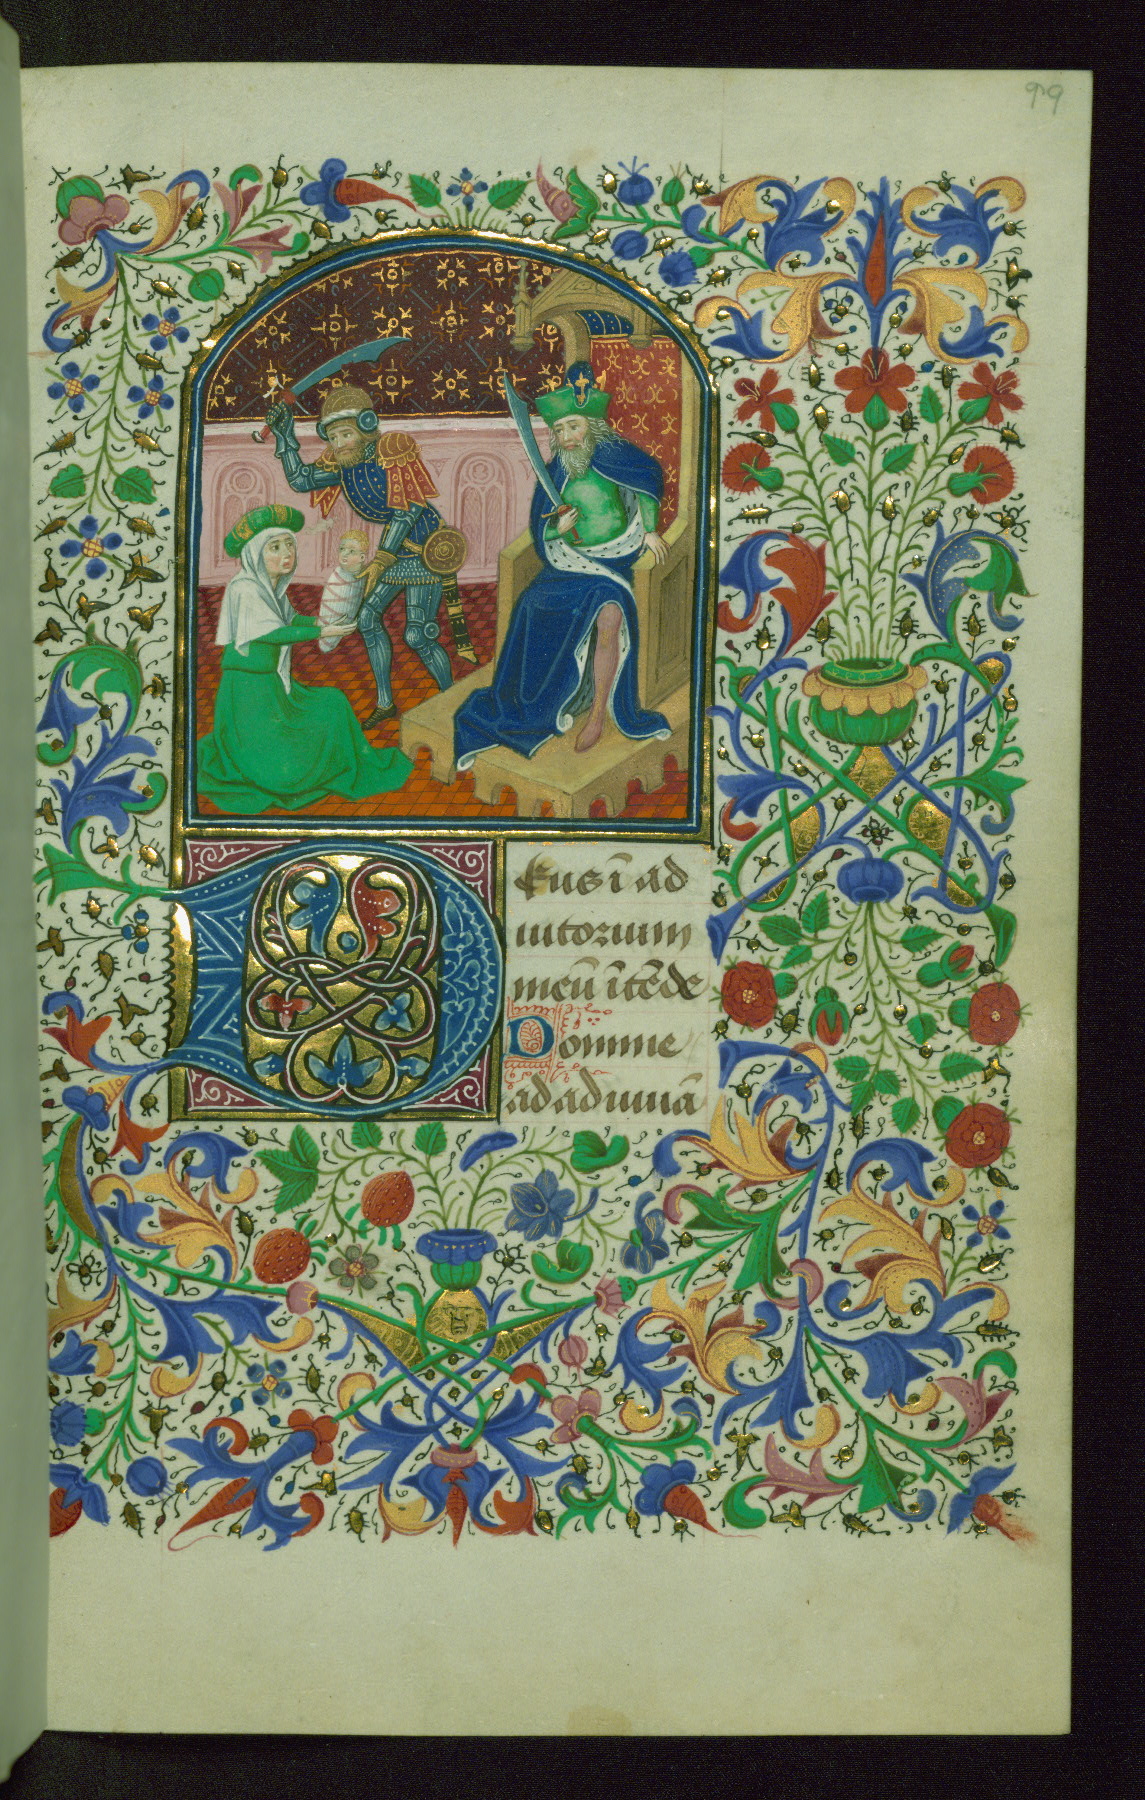 99
Deus ī ad
iutorium
meū ītēde
Domine
ad adiuuā